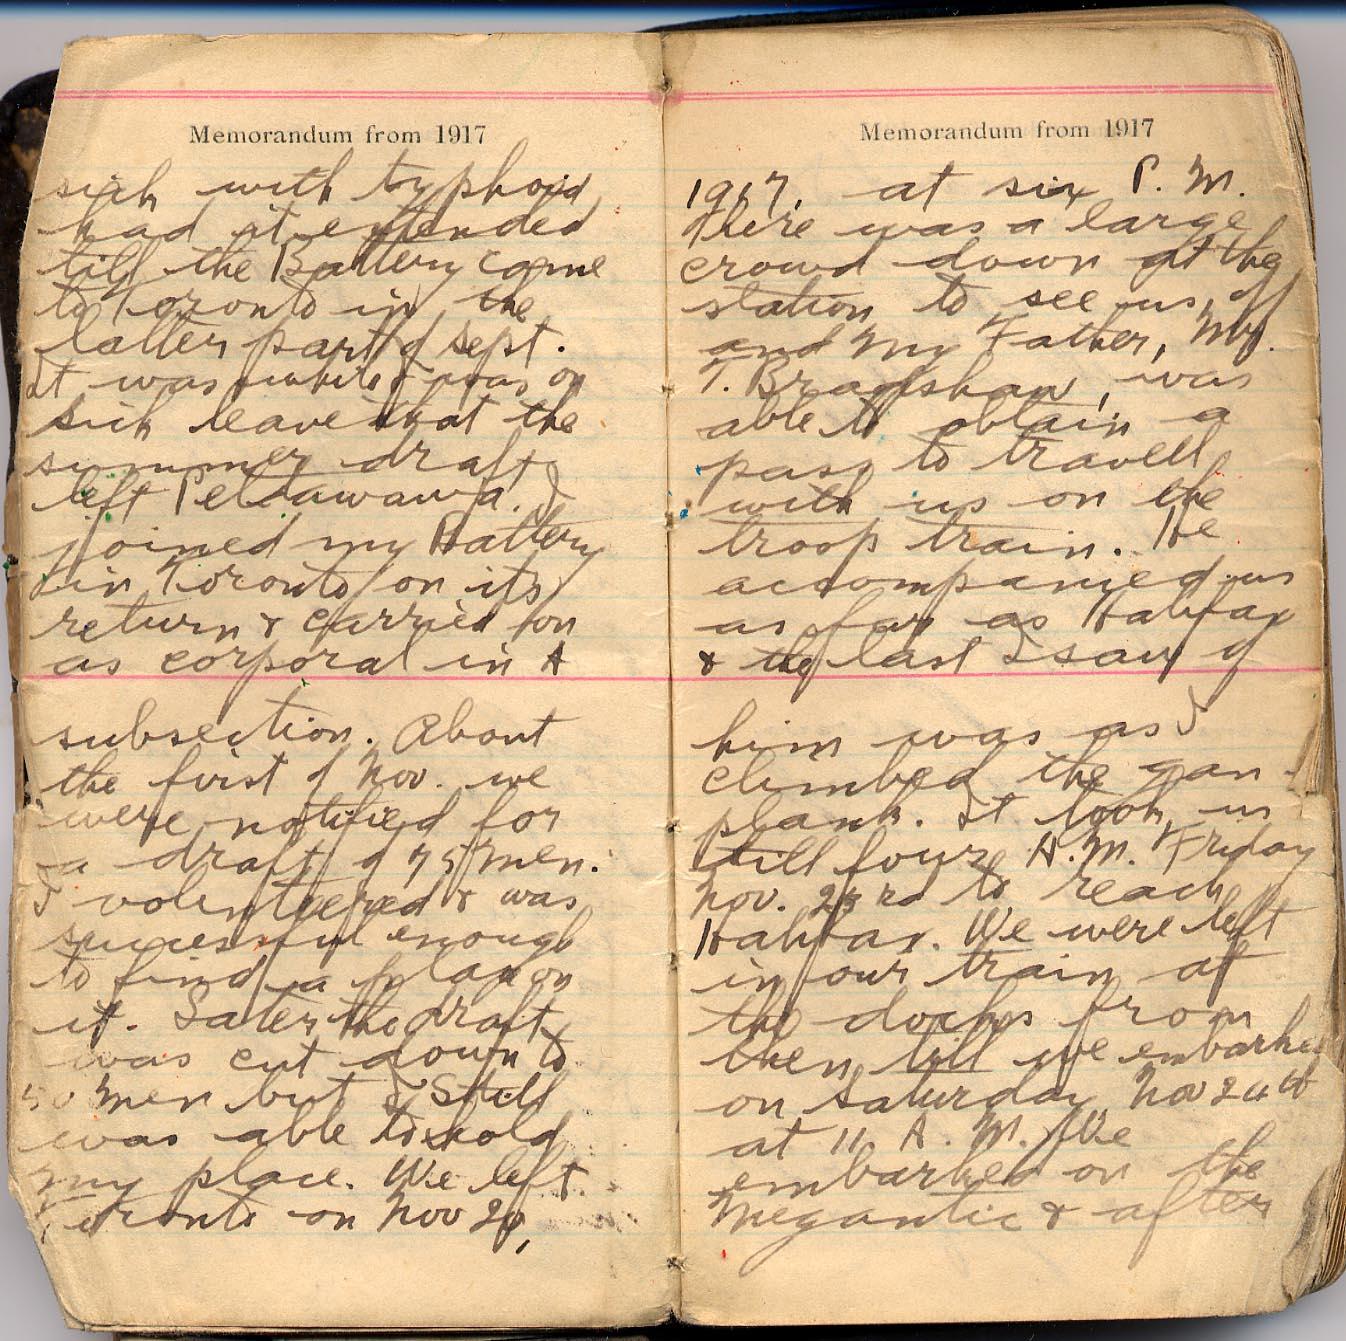 Memorandum from 1917
sick with typhoid
had it extended
till the Battery came
to Toronto in the
latter part of Sept.
It was while I was on
sick leave that the
summer draft
left Pettawawa. I
joined my Battery
in Toronto on its
return & carried on
as corporal in A
subsection. About
the first of Nov. we
were notified for
a draft of 75 men.
I volunteered & was
successful enough
to find a place on
it. Later the draft
was cut down to
50 men but I still
was able to hold
my place. We left
Toronto on Nov 20,
Memorandum from 1917
1917, at six P. M.
There was a large
crowd down at the
station to see us off
and my Father, Mr.
T. Bradshaw, was
able to obtain a
pass to travell
with us on the
troop train. He
accompanied us
as far as Halifax
& the last I saw of
him was as I
climbed the gan-
plank. It took us
till four A.M. Friday
Nov. 23rd to reach
Halifax. We were left
in our train at
the docks from
then till we embarked
on Saturday Nov 24th
at 11 A. M. We
embarked on the
Megantic & after